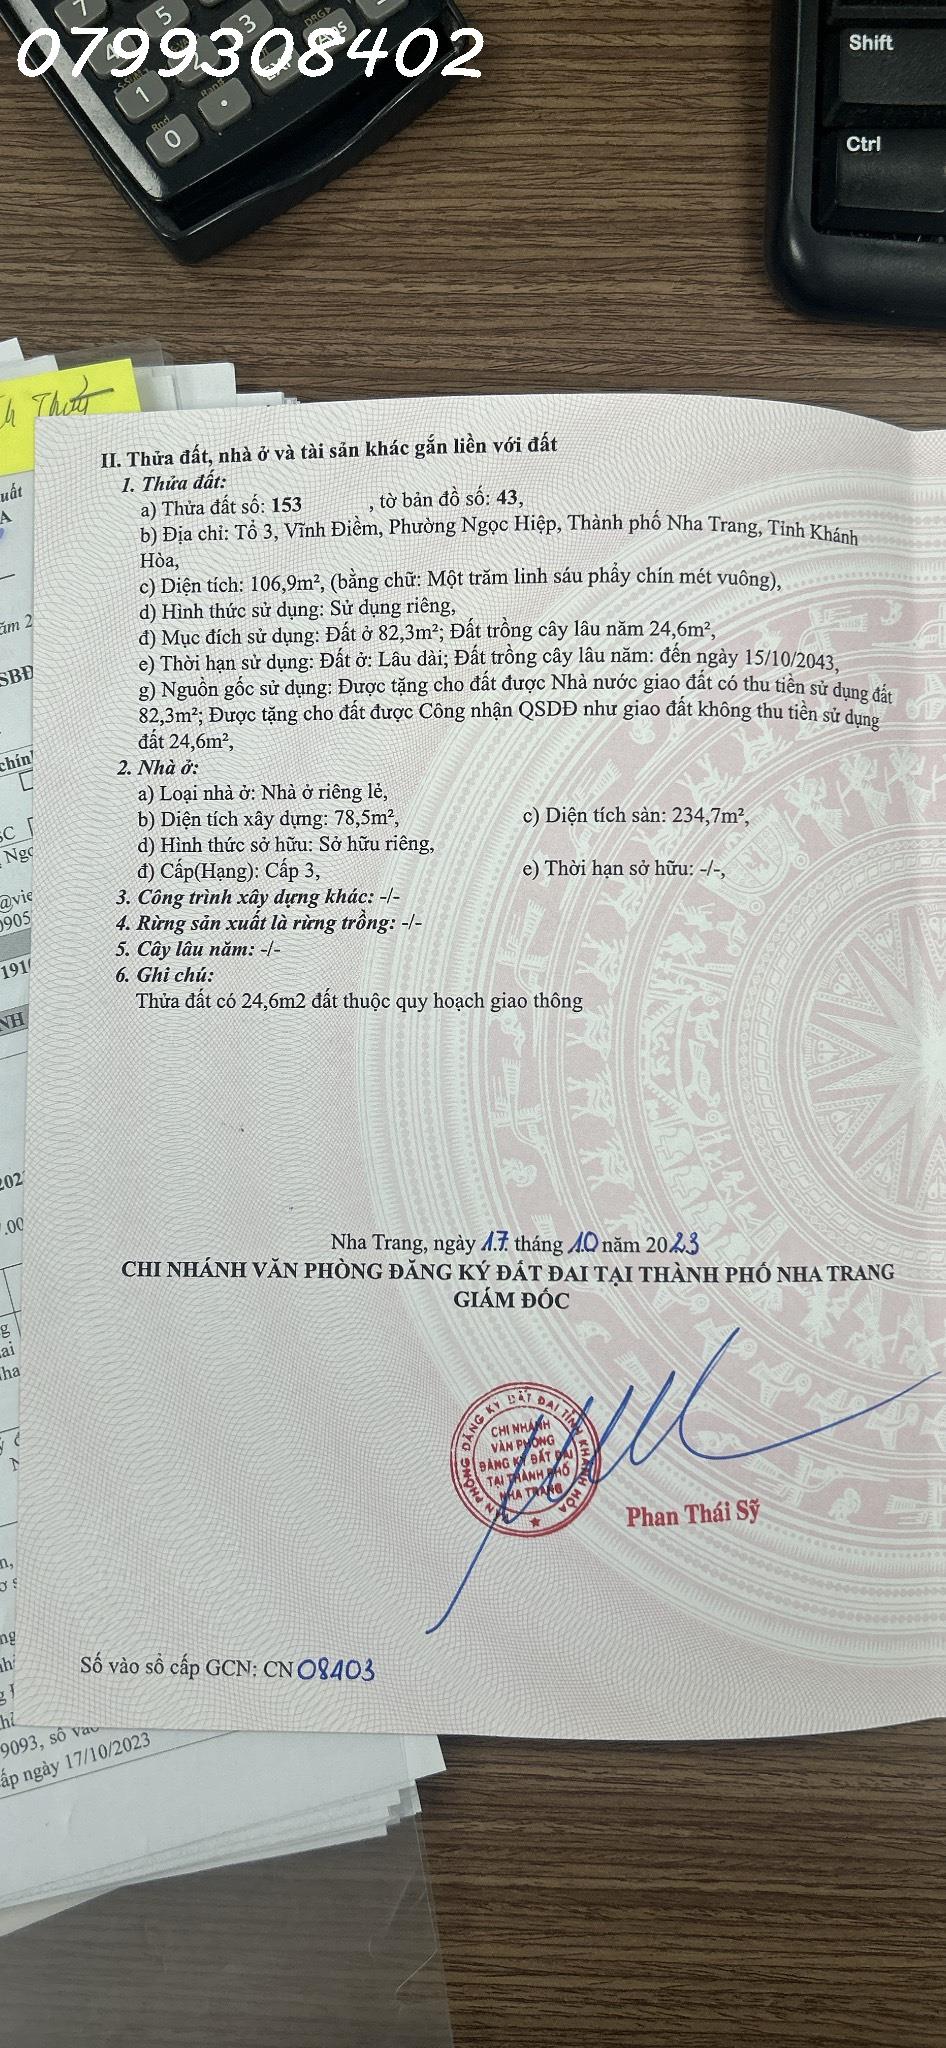 0799308402
Shift
Ctrl
7
5
3
1
0
Rnd
Thuỷ
II. Thửa đất, nhà ở và tài sản khác gắn liền với đất
1. Thửa đất:
a) Thửa đất số: 153 , tờ bản đồ số: 43,
b) Địa chỉ: Tổ 3, Vĩnh Điềm, Phường Ngọc Hiệp, Thành phố Nha Trang, Tỉnh Khánh
Hòa,
c) Diện tích: 106,9m², (bằng chữ: Một trăm linh sáu phẩy chín mét vuông),
d) Hình thức sử dụng: Sử dụng riêng,
đ) Mục đích sử dụng: Đất ở 82,3m²; Đất trồng cây lâu năm 24,6m²,
e) Thời hạn sử dụng: Đất ở: Lâu dài; Đất trồng cây lâu năm: đến ngày 15/10/2043,
g) Nguồn gốc sử dụng: Được tặng cho đất được Nhà nước giao đất có thu tiền sử dụng đất
82,3m²; Được tặng cho đất được Công nhận QSDĐ như giao đất không thu tiền sử dụng
đất 24,6m²,
2. Nhà ở:
a) Loại nhà ở: Nhà ở riêng lẻ,
b) Diện tích xây dựng: 78,5m², c) Diện tích sàn: 234,7m²,
d) Hình thức sở hữu: Sở hữu riêng,
đ) Cấp(Hạng): Cấp 3, e) Thời hạn sở hữu: -/-,
3. Công trình xây dựng khác: -/-
4. Rừng sản xuất là rừng trồng: -/-
5. Cây lâu năm: -/-
6. Ghi chú:
Thửa đất có 24,6m2 đất thuộc quy hoạch giao thông
Nha Trang, ngày 17 tháng 10 năm 2023
CHI NHÁNH VĂN PHÒNG ĐĂNG KÝ ĐẤT ĐAI TẠI THÀNH PHỐ NHA TRANG
GIÁM ĐỐC
VĂN PHÒNG ĐĂNG KÝ ĐẤT ĐAI TỈNH KHÁNH HÒA
CHI NHÁNH
VĂN PHÒNG
ĐĂNG KÝ ĐẤT ĐAI
TẠI THÀNH PHỐ
NHA TRANG
Phan Thái Sỹ
Số vào sổ cấp GCN: CN 08403
9093, số vào
cấp ngày 17/10/2023